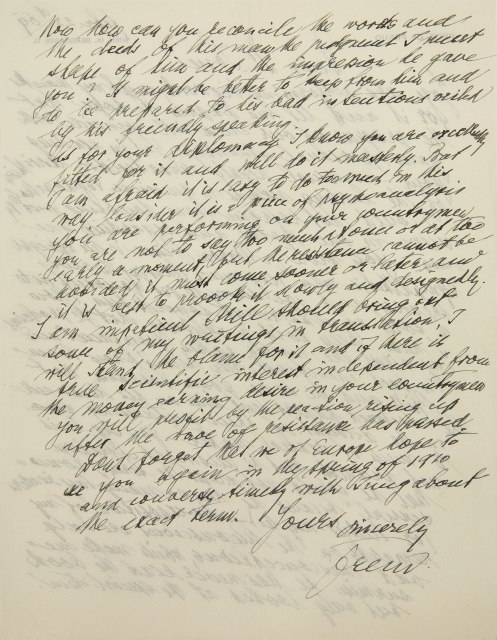 Now how can you reconcile the words and
the deeds of this man, the judgment I must
shape of him and the impression he gave
you? It might be better to keep from him and
to be prepared to his bad intentions veiled
by his friendly speaking.
As for your diplomacy I know you are excellently
fitted for it and will do it masterly. But
I am afraid it is easy to do too much in this
way. Consider it is a piece of psychoanalysis
you are performing on your countrymen
you are not to say too much at once or at too
early a moment, but the resistance cannot be
avoided, it must come sooner or later and
it is best to provoke it slowly and designedly.
I am impatient Brill should bring out
some of my writings in translation, I
will stand the blame for it and if there is
true scientific interest independent from
the money earning desire in your countrymen
you will profit by the reaction rising up
after the time of resistance has passed.
Dont forget that we of Europe hope to
see you again in the spring of 1910
and converse timely with Jung about
the exact term.
Yours sincerely
Freud